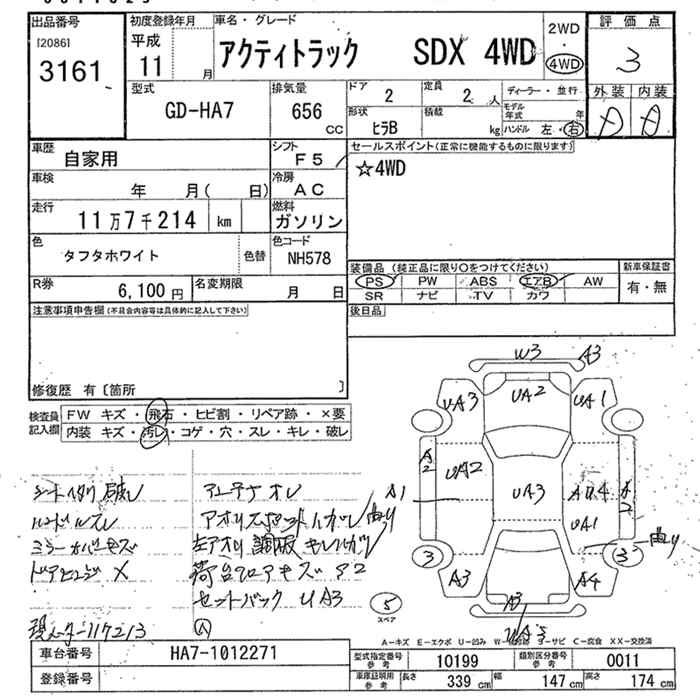 出品番号 初度登録年月 車名・グレード 評価点
I20861 平成 アクティトラック SDX 4WD 2WD・4WD
3161 11 月 3
型式 排気量 ドア 定員 ディーラー・並行 外装 内装
GD-HA7 656 CC 2 2 人 モデル年式 年 A A
形状 積載 kg ハンドル 左・右
ヒラB
車歴 自家用 シフト F5 セールスポイント(正常に機能するものに限ります)
車検 年 月( 日) 冷房 AC ☆4WD
走行 11万7千214 km 燃料 ガソリン
色 タフタホワイト 色替 色コード NH578
装備品 (純正品に限り○をつけてください) 新車保証書
R券 6,100円 名変期限 月 日 PS PW ABS エアB AW 有・無
SR ナビ TV カワ
注意事項申告欄(不具合内容等は具体的に記入して下さい) 後日品
修復歴 有〔箇所 〕
検査員記入欄 FW キズ・飛石・ヒビ割・リペア跡・×要
内装 キズ・汚レ・コゲ・穴・スレ・キレ・破レ
W3 A3
UA3 UA2 UA1
A2 UA2 UA3 AU4 A2
A1 UA1
曲り 曲り
3 3
A3 A4
5 スペア A3
アンテナオレ
ミラーカバーキズ
ドアヒンジ X
荷台フロアキズ A2
セットバック UA3
A-キズ E-エクボ U-凹み W-波 S-サビ C-腐食 XX-交換済
車台番号 HA7-1012271 型式指定番号参考 10199 類別区分番号参考 0011
登録番号 車庫証明用参考 長さ 339 cm 幅 147 cm 高さ 174 cm